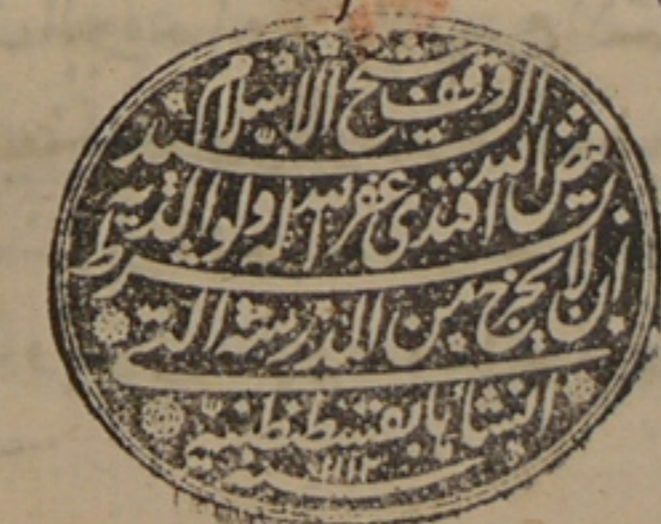 وقف شيخ الاسلام السيد
فيض الله افندى غفر الله له ولوالديه
بشرط ان لا يخرج من المدرسة التي
انشأها بقسطنطنية
سنة ١١١٢